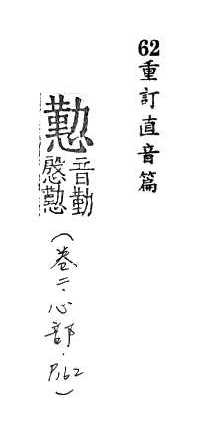 62重訂直音篇
懃
音勤
慇懃
（卷二·心部·P.62）